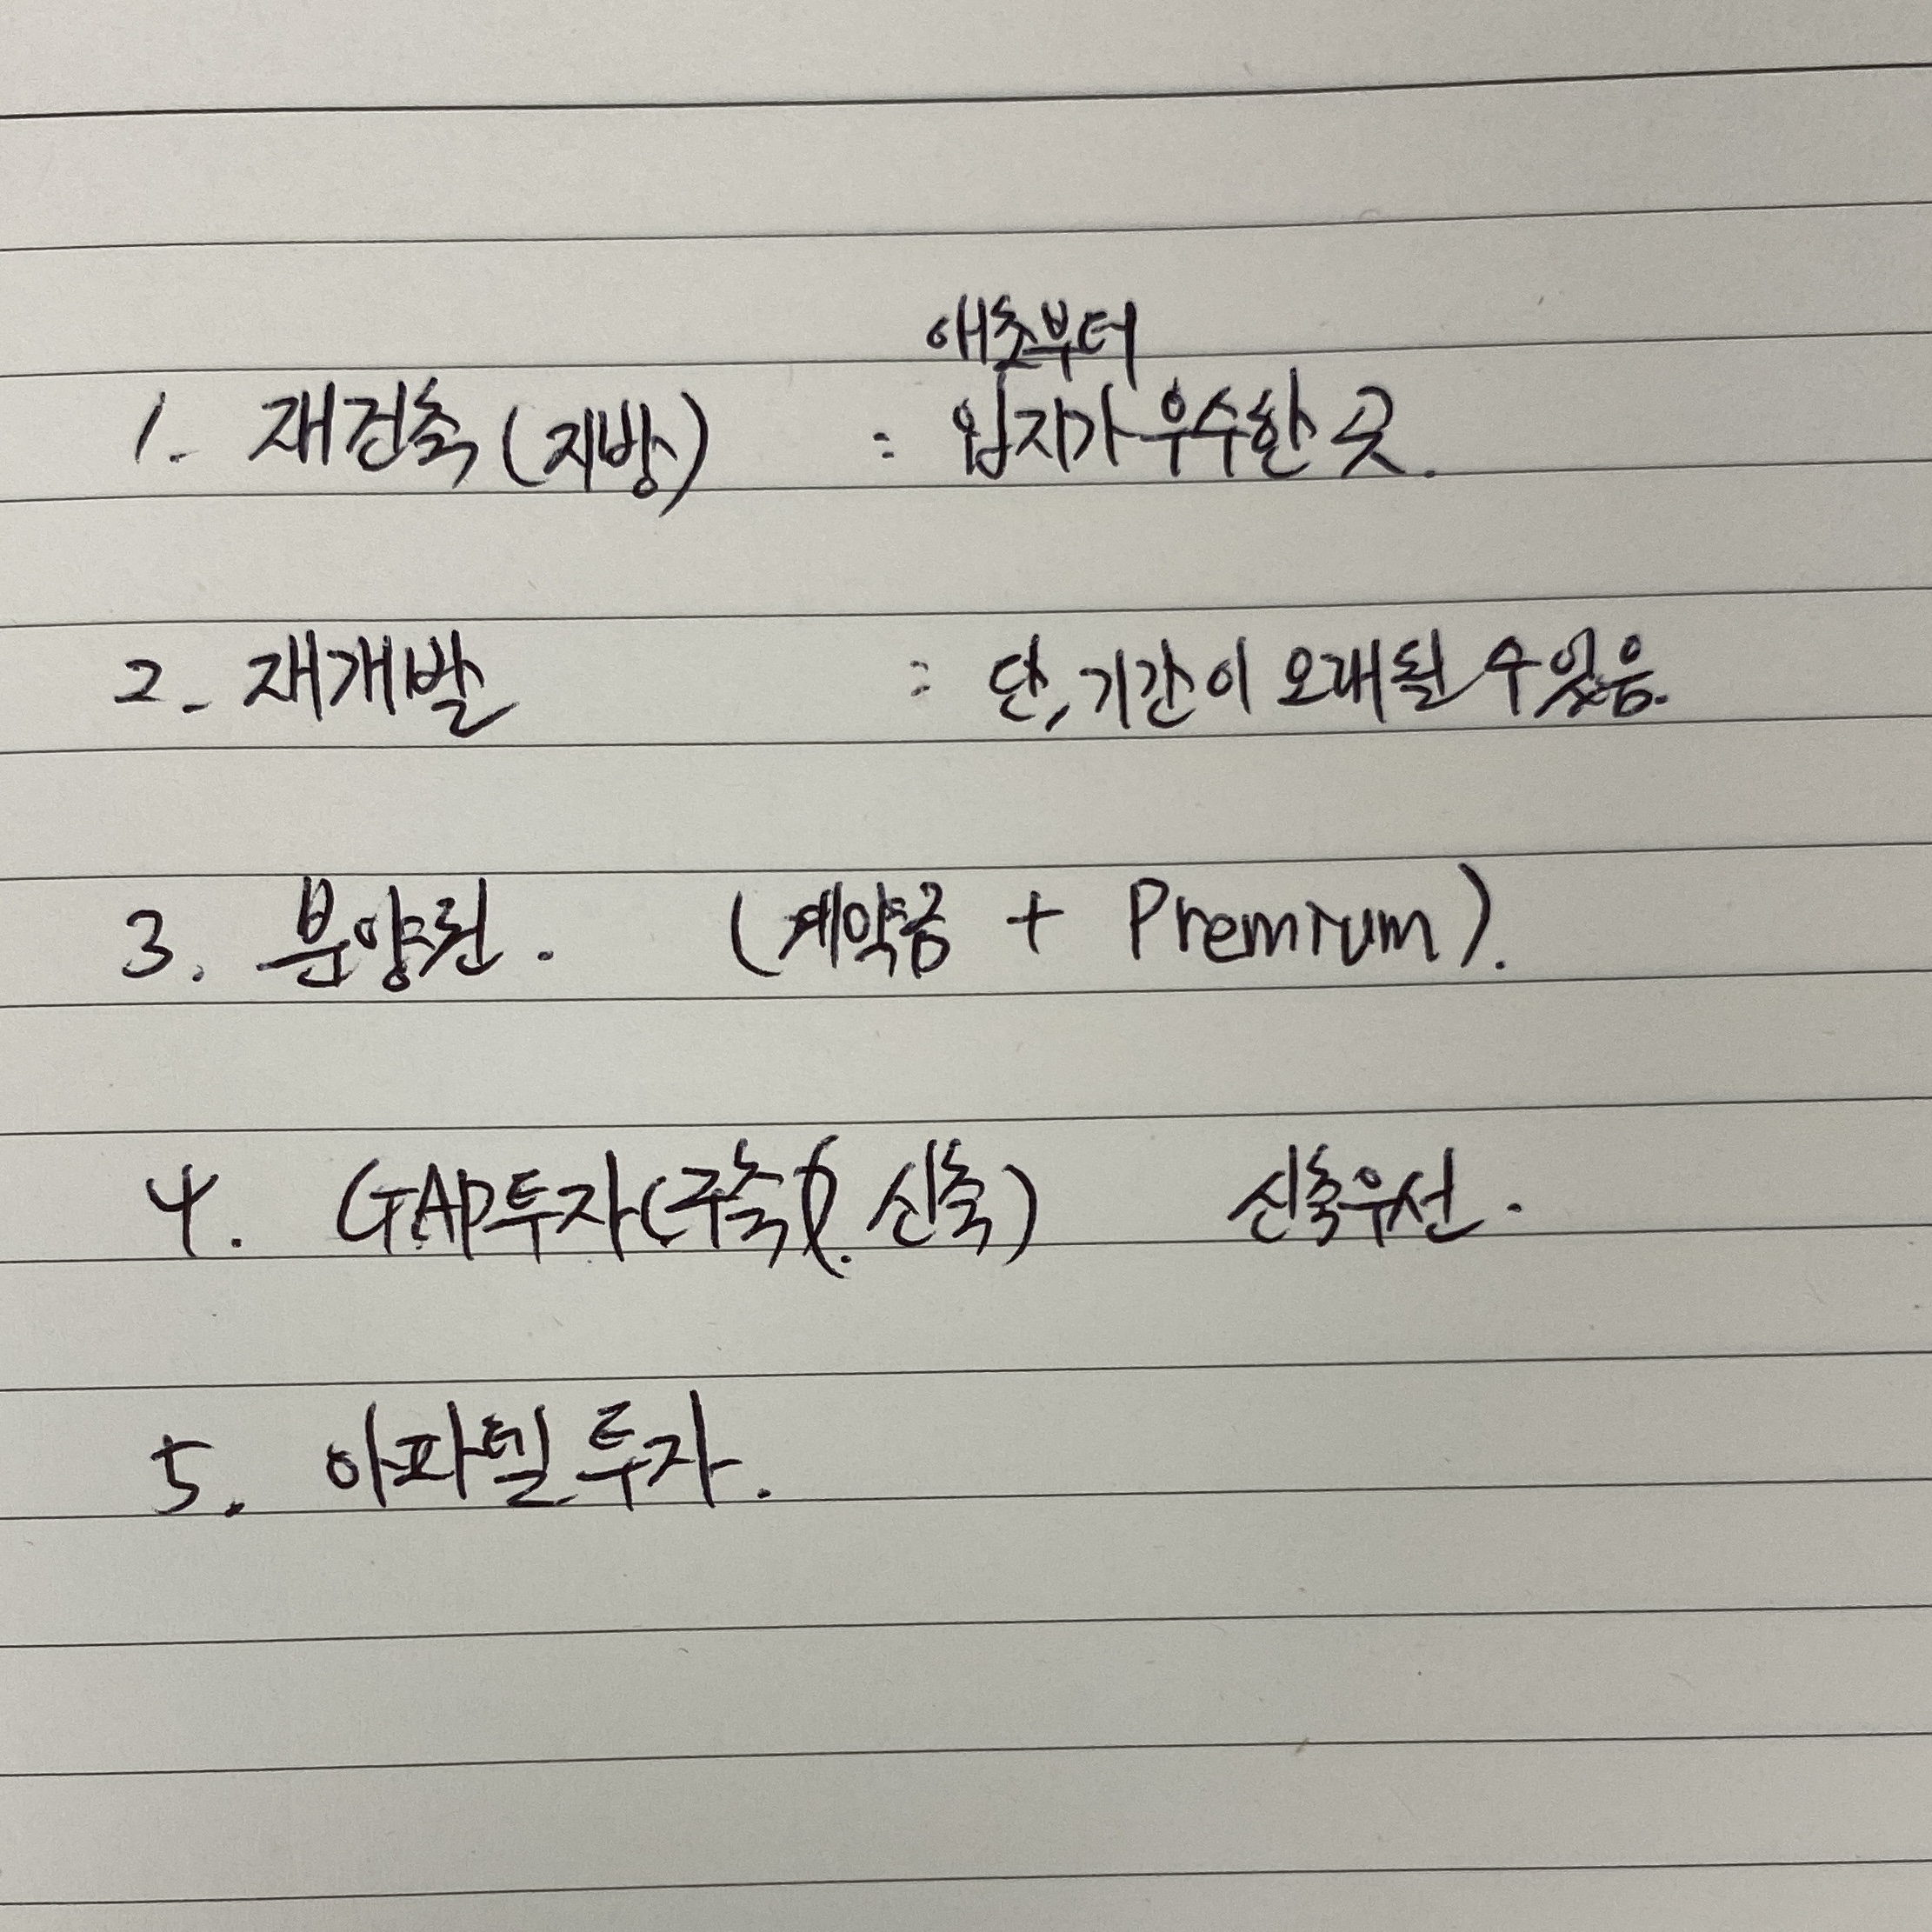 애초부터
1. 재건축(지방) : 입지가 우수한 곳.
2. 재개발 : 단, 기간이 오래될 수 있음.
3. 분양권. (계약금 + Premium).
4. GAP투자(구축, 신축) 신축우선.
5. 아파텔 투자.